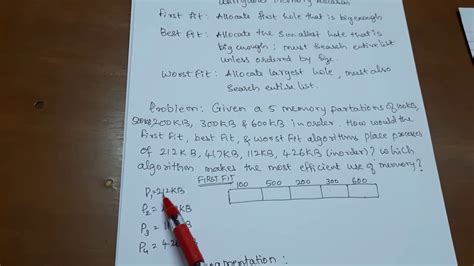 Contiguous Memory Allocation
First Fit: Allocate first hole that is big enough
Best Fit: Allocate the smallest hole that is
big enough; must search entire list
unless ordered by size.
Worst Fit: Allocate largest hole, must also
search entire list.
Problem: Given a 5 memory partations of 100KB,
500KB, 200KB, 300KB & 600KB in order. How would the
first fit, best fit, & worst fit algorithms place process
of 212KB, 417KB, 112KB, 426KB (inorder)? which
algorithm makes the most efficient use of memory?
FIRST FIT 100 500 200 300 600
P1=212KB
P2 =
P3 =
P4 = 426